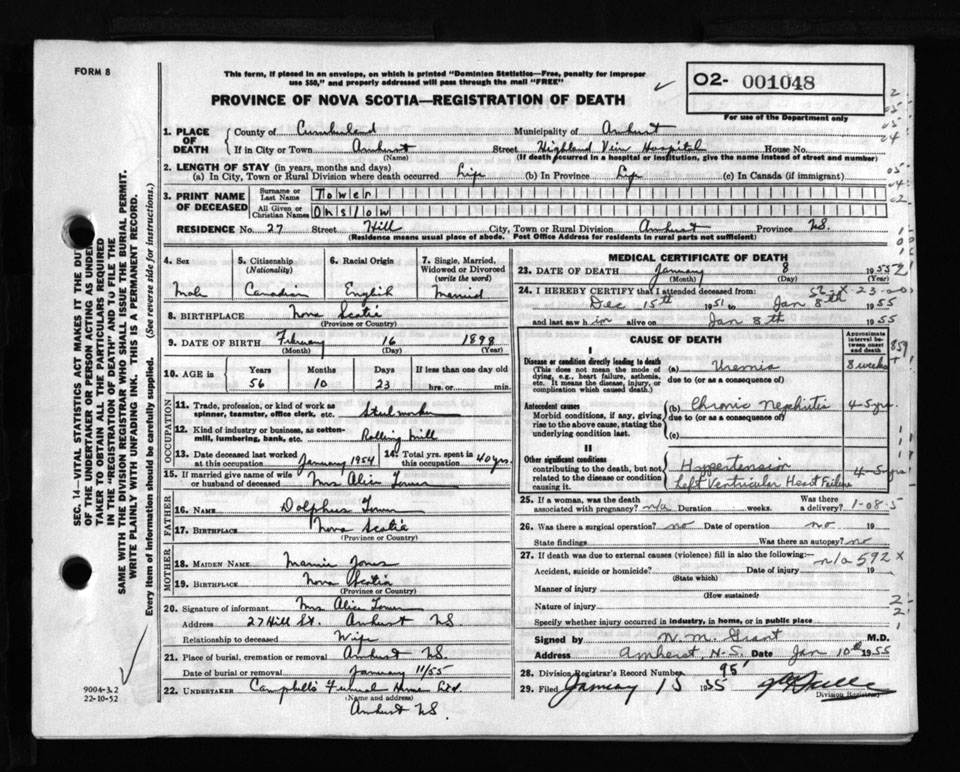 FORM 8
This form, if placed in an envelope, on which is printed "Dominion Statistics—Free, penalty for improper
use $50," and properly addressed will pass through the mail "FREE"
✓
O2- 001048
For use of the Department only
PROVINCE OF NOVA SCOTIA—REGISTRATION OF DEATH
1. PLACE OF DEATH
County of Cumberland Municipality of Amherst
If in City or Town Amherst Street Highland View Hospital House No.
(Name) (If death occurred in a hospital or institution, give the name instead of street and number)
2. LENGTH OF STAY (in years, months and days)
(a) In City, Town or Rural Division where death occurred Life (b) In Province Life (c) In Canada (if immigrant)
3. PRINT NAME OF DECEASED
Surname or Last Name Tower
All Given or Christian Names Onslow
RESIDENCE No. 27 Street Hill City, Town or Rural Division Amherst Province NS.
(Residence means usual place of abode. Post Office Address for residents in rural parts not sufficient)
4. Sex
Male
5. Citizenship (Nationality)
Canadian
6. Racial Origin
English
7. Single, Married, Widowed or Divorced (write the word)
Married
8. BIRTHPLACE Nova Scotia
(Province or Country)
9. DATE OF BIRTH February 16 1898
(Month) (Day) (Year)
10. AGE in Years Months Days If less than one day
56 10 23 hrs. or min.
OCCUPATION
11. Trade, profession, or kind of work as spinner, teamster, office clerk, etc. Steel worker
12. Kind of industry or business, as cotton-mill, lumbering, bank, etc. Rolling mill
13. Date deceased last worked at this occupation January 1954 14. Total yrs. spent in this occupation 40 yrs.
15. If married give name of wife or husband of deceased Mrs Alice Tower
FATHER
16. NAME Dolphus Tower
17. BIRTHPLACE Nova Scotia
(Province or Country)
MOTHER
18. MAIDEN NAME Mamie Jones
19. BIRTHPLACE Nova Scotia
(Province or Country)
20. Signature of informant Mrs Alice Tower
Address 27 Hill St. Amherst NS
Relationship to deceased Wife
21. Place of burial, cremation or removal Amherst NS.
Date of burial or removal January 11/55
22. UNDERTAKER Campbell's Funeral Home Ltd.
(Name and address)
Amherst NS.
MEDICAL CERTIFICATE OF DEATH
23. DATE OF DEATH January 8 1955
(Month) (Day) (Year)
24. I HEREBY CERTIFY that I attended deceased from:
Dec 15th 1951 to Jan 8th 1955
and last saw him alive on Jan 8th 1955
CAUSE OF DEATH
Approximate interval between onset and death
I
Disease or condition directly leading to death
(This does not mean the mode of dying, e.g., heart failure, asthenia, etc. It means the disease, injury, or complication which caused death.)
(a) Uremia 8 weeks
due to (or as a consequence of)
Antecedent causes
Morbid conditions, if any, giving rise to the above cause, stating the underlying condition last.
(b) Chronic Nephritis 4-5 yrs
due to (or as a consequence of)
(c)
II
Other significant conditions
contributing to the death, but not related to the disease or condition causing it.
Hypertension
Left Ventricular Heart Failure 4-5 yrs
25. If a woman, was the death associated with pregnancy? n/a Duration weeks. Was there a delivery?
26. Was there a surgical operation? no Date of operation no 19
State findings Was there an autopsy? no
27. If death was due to external causes (violence) fill in also the following:— n/a 592 X
Accident, suicide or homicide? Date of injury 19
(State which)
Manner of injury
(How sustained)
Nature of injury
Specify whether injury occurred in industry, in home, or in public place
Signed by N. M. Grant M.D.
Address Amherst, N.S. Date Jan 10th 1955
28. Division Registrar's Record Number 95
29. Filed January 15 1955
Division Registrar
SEC. 14—VITAL STATISTICS ACT MAKES IT THE DUTY
OF THE UNDERTAKER OR PERSON ACTING AS UNDER-
TAKER TO OBTAIN ALL THE PARTICULARS REQUIRED
IN THE "REGISTRATION OF DEATH" AND TO FILE THE
SAME WITH THE DIVISION REGISTRAR WHO SHALL ISSUE THE BURIAL PERMIT.
WRITE PLAINLY WITH UNFADING INK. THIS IS A PERMANENT RECORD.
Every item of information should be carefully supplied. (See reverse side for instructions.)
9004-3.2
22-10-52